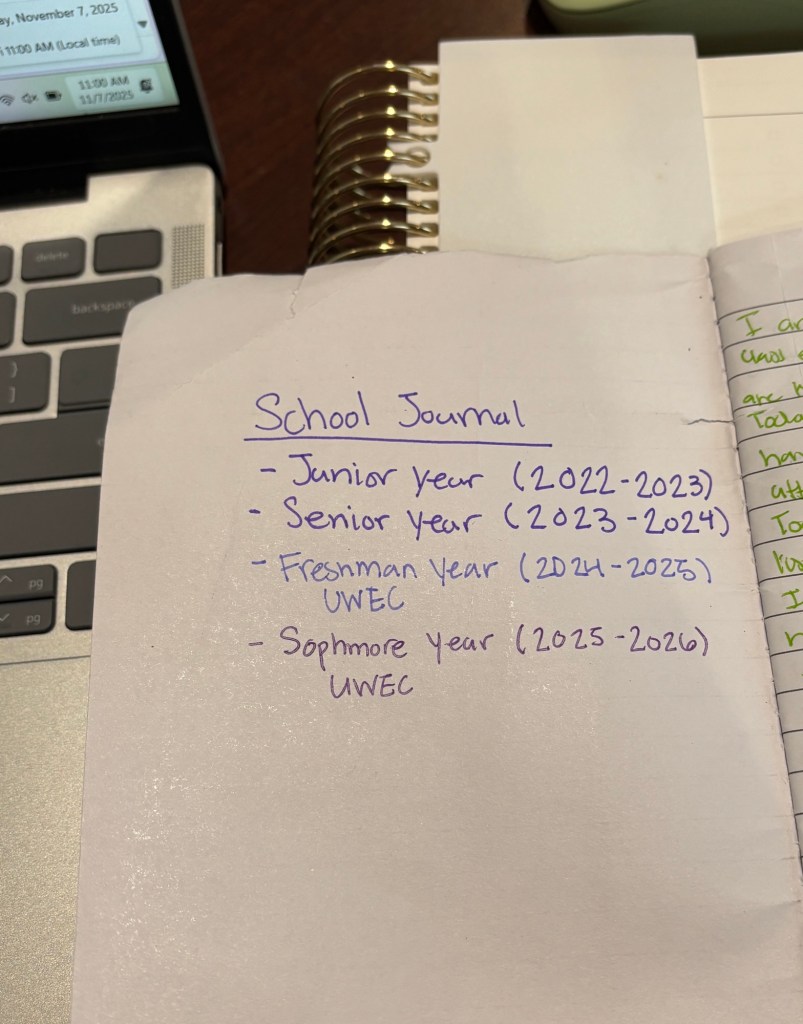 ay, November 7, 2025
11:00 AM (Local time)
11:00 AM
11/7/2025
delete
backspace
}
]
pg
pg
School Journal
- Junior year (2022-2023)
- Senior year (2023-2024)
- Freshman year (2024-2025)
UWEC
- Sophmore year (2025-2026)
UWEC
I ar
class
are h
Toda
han
att
To
I